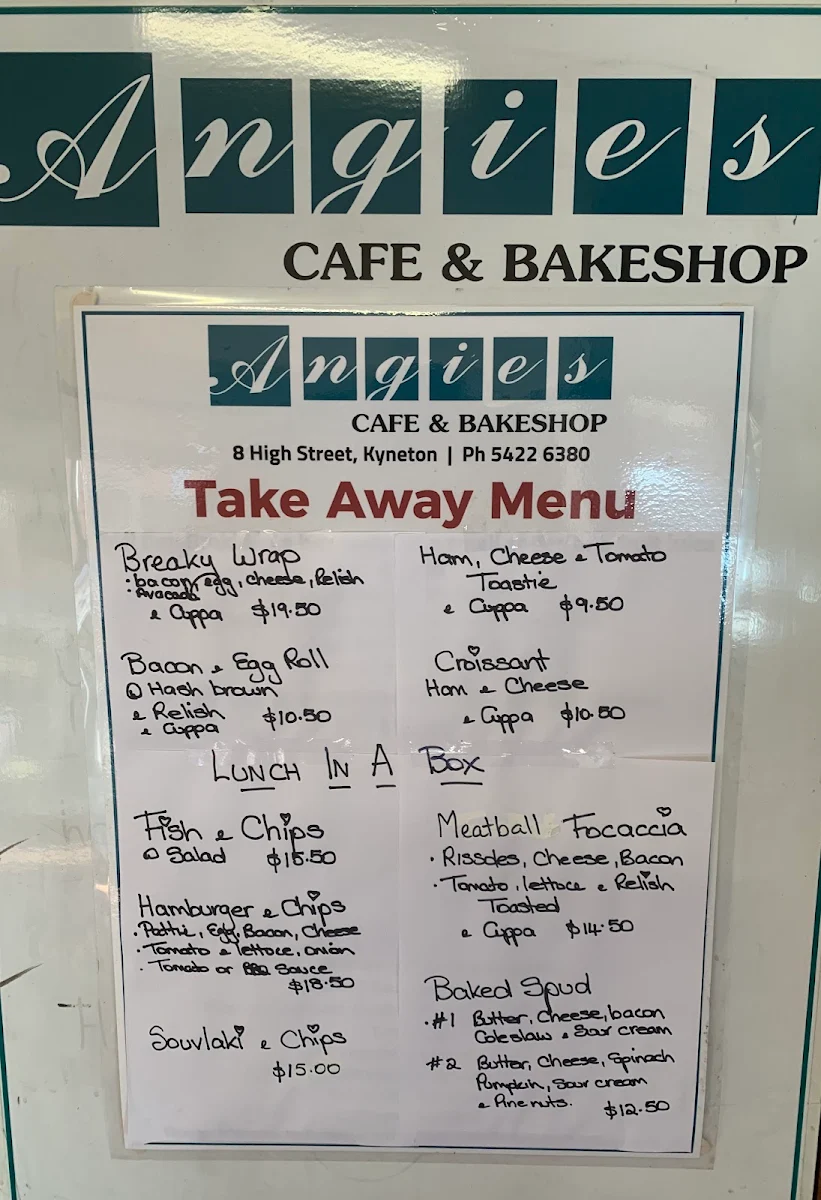 Angies
CAFE & BAKESHOP
Angies
CAFE & BAKESHOP
8 High Street, Kyneton | Ph 5422 6380
Take Away Menu
Breaky Wrap
• bacon, egg, cheese, Relish
• Avacado
& Cuppa $19.50
Bacon & Egg Roll
Hash brown
& Relish $10.50
& Cuppa
Ham, Cheese & Tomato
Toastie
& Cuppa $9.50
Croissant
Ham & Cheese
& Cuppa $10.50
LUNCH IN A BOX
Fish & Chips
Salad $15.50
Hamburger & Chips
• Pattie, Egg, Bacon, Cheese
• Tomato & lettoce, onion
• Tomato or BBQ Sauce
$18.50
Souvlaki & Chips
$15.00
Meatball Focaccia
• Rissoles, Cheese, Bacon
• Tomato, lettoce & Relish
Toasted
& Cuppa $14.50
Baked Spud
• #1 Butter, Cheese, bacon
Coleslaw & Sour cream
#2 Butter, Cheese, Spinach
Pumpkin, Sour cream
& Pinenuts. $12.50